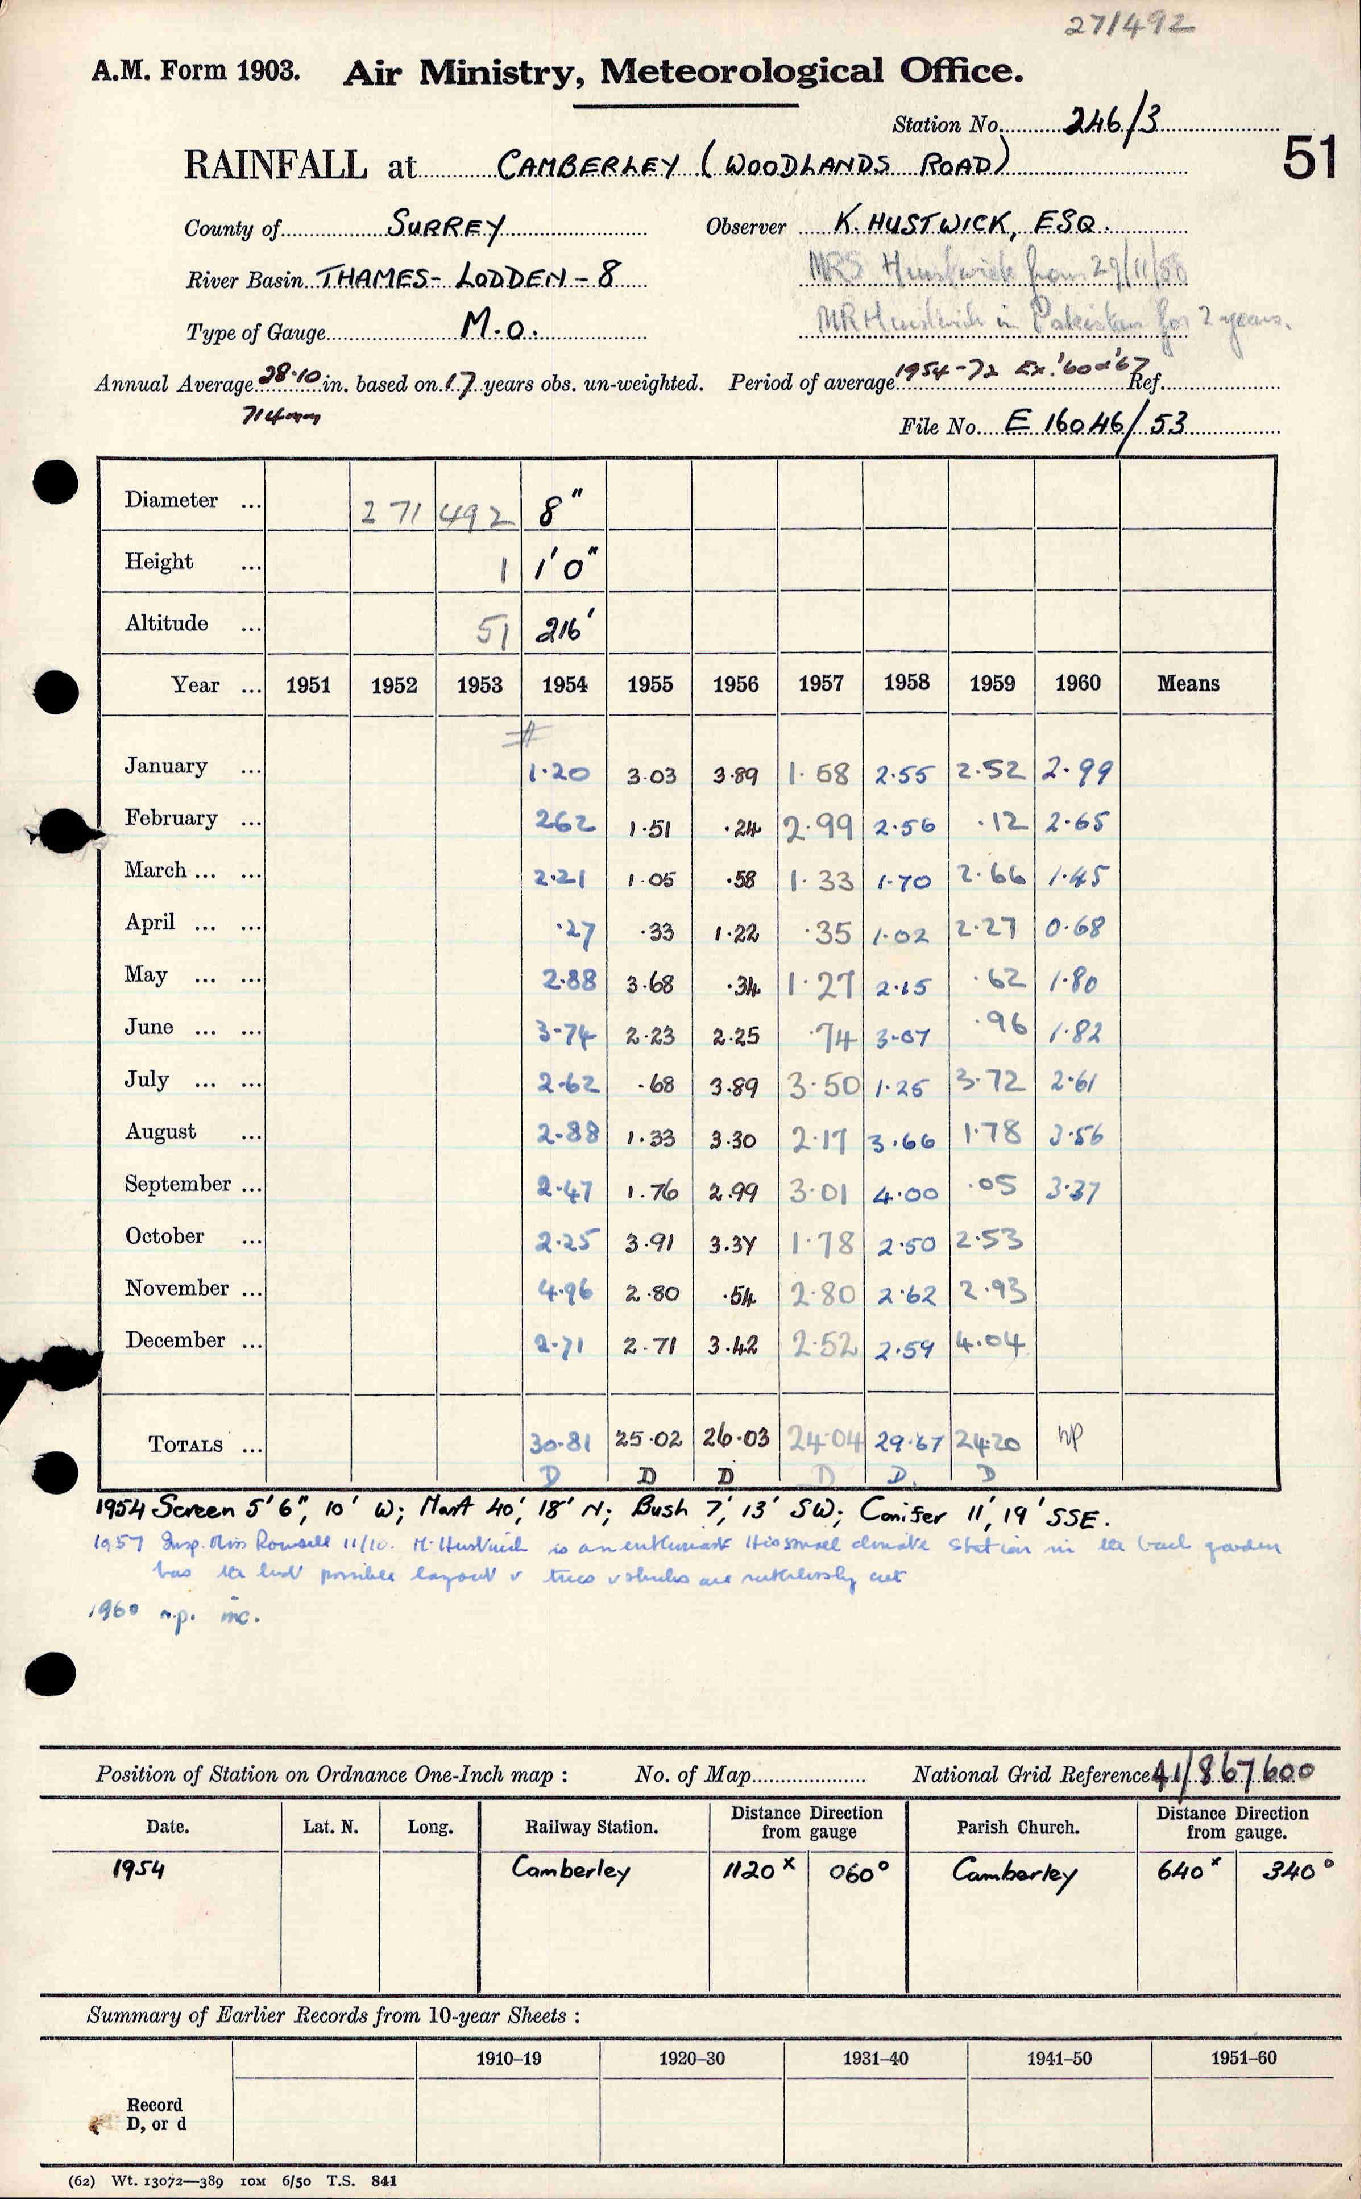 27/492
A.M. Form 1903. Air Ministry, Meteorological Office.
Station No. 246/3
51
RAINFALL at CAMBERLEY (WOODLANDS ROAD)
County of SURREY Observer K. HUSTWICK, ESQ.
River Basin THAMES - LODDEN - 8 MRS Hustwick from 29/11/58
Type of Gauge M.O. MR Hustwick in Pakistan for 2 years.
Annual Average 28.10 in. based on 17 years obs. un-weighted. Period of average 1954-72 Ex. '60 & '67 Ref.
714mm
File No. E 16046/53
Diameter ... 271 492 8"
Height ... 1 1'0"
Altitude ... 51 216'
Year ... 1951 1952 1953 1954 1955 1956 1957 1958 1959 1960 Means
#
January ... 1.20 3.03 3.89 1.58 2.55 2.52 2.99
February ... 262 1.51 .24 2.99 2.56 .12 2.65
March ... ... 2.21 1.05 .58 1.33 1.70 2.66 1.45
April ... ... .27 .33 1.22 .35 1.02 2.27 0.68
May ... ... 2.88 3.68 .34 1.27 2.15 .62 1.80
June ... ... 3.74 2.23 2.25 .74 3.07 .96 1.82
July ... ... 2.62 .68 3.89 3.50 1.25 3.72 2.61
August ... 2.88 1.33 3.30 2.17 3.66 1.78 3.56
September ... 2.47 1.76 2.99 3.01 4.00 .05 3.37
October ... 2.25 3.91 3.37 1.78 2.50 2.53
November ... 4.96 2.80 .54 2.80 2.62 2.93
December ... 2.71 2.71 3.42 2.52 2.59 4.04
TOTALS ... 30.81 25.02 26.03 24.04 29.67 24.20 np
D D D D D. D
1954 Screen 5'6", 10' W; Mast 40', 18' N; Bush 7', 13' SW; Conifer 11', 19' SSE.
1957 Insp. Miss Rowsell 11/10. Mr Hustwick is an enthusiast His small climate station in the back garden
has the best possible layout & trees & shrubs are ruthlessly cut
1960 n.p. inc.
Position of Station on Ordnance One-Inch map : No. of Map National Grid Reference 41/867600
Date. Lat. N. Long. Railway Station. Distance Direction from gauge Parish Church. Distance Direction from gauge.
1954 Camberley 1120ˣ 060° Camberley 640ˣ 340°
Summary of Earlier Records from 10-year Sheets :
1910–19 1920–30 1931–40 1941–50 1951–60
Record
D, or d
(62) Wt. 13072—389 10M 6/50 T.S. 841